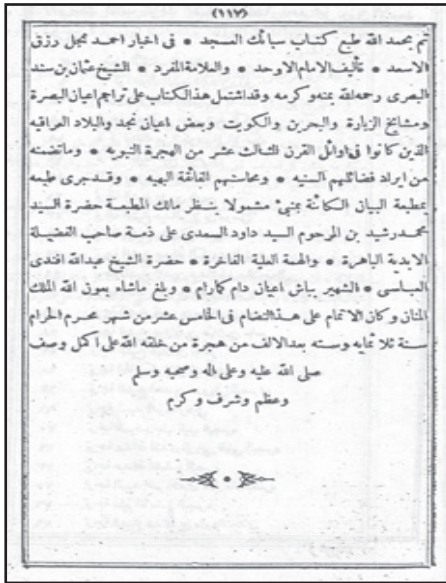 (١١٧)
تم بحمد الله طبع كتاب سبائك العسجد * فى اخبار احمد نجل رزق
الاسعد * تأليف الامام الاوحد * والعلامة المفرد * الشيخ عثمان بن سند
البصرى رحمه الله بمنه وكرمه وقد اشتمل هذا الكتاب على تراجم اعيان البصرة
ومشايخ الزبارة والبحرين والكويت وبعض اعيان نجد والبلاد العراقيه
الذين كانوا فى اوائل القرن الثالث عشر من الهجرة النبويه * وما تضمنه
من ايراد فضائلهم السنيه * ومحاسنهم الفائقة البهيه * وقد جرى طبعه
بمطبعة البيان الكائنة بمنبئ مشمولا بنظر مالك المطبعة حضرة السيد
محمد رشيد بن المرحوم السيد داود السعدى على ذمة صاحب الفضيلة
الابدية الباهرة * والهمة العلية الفاخرة * حضرة الشيخ عبدالله افندى
العباسى * الشهير بباش اعيان دام كمارام * وبلغ ماشاء بعون الله الملك
المنان وكان الاتمام على هذا النضام فى الخامس عشر من شهر محرم الحرام
سنة ثلاثمايه وسته بعد الالف من هجرة من خلقه الله على اكمل وصف
صلى الله عليه وعلى اله وصحبه وسلم
وعظم وشرف وكرم